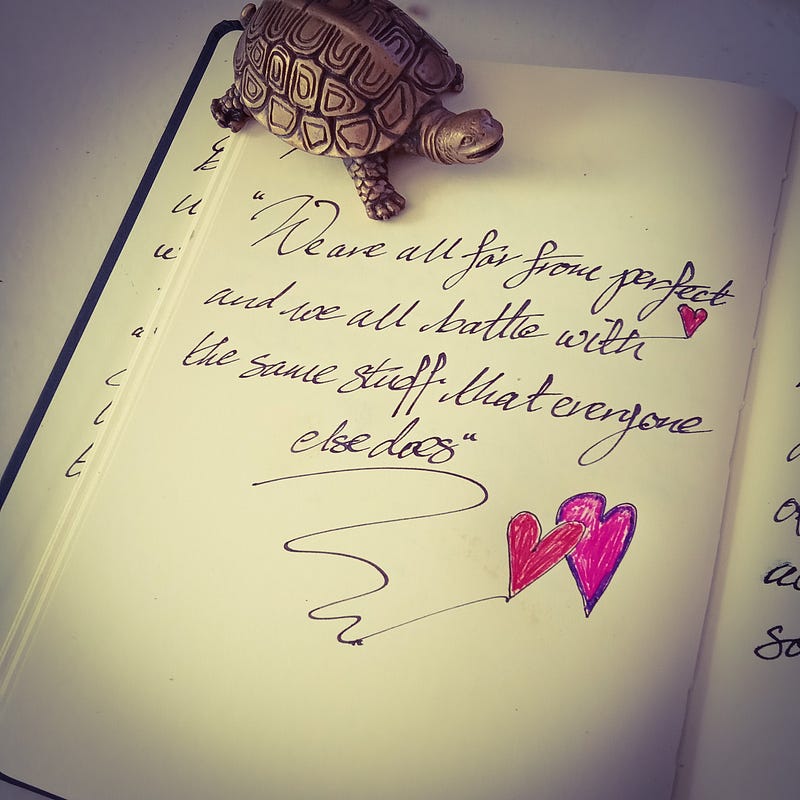 "We are all far from perfect
and we all battle with
the same stuff that everyone
else does"